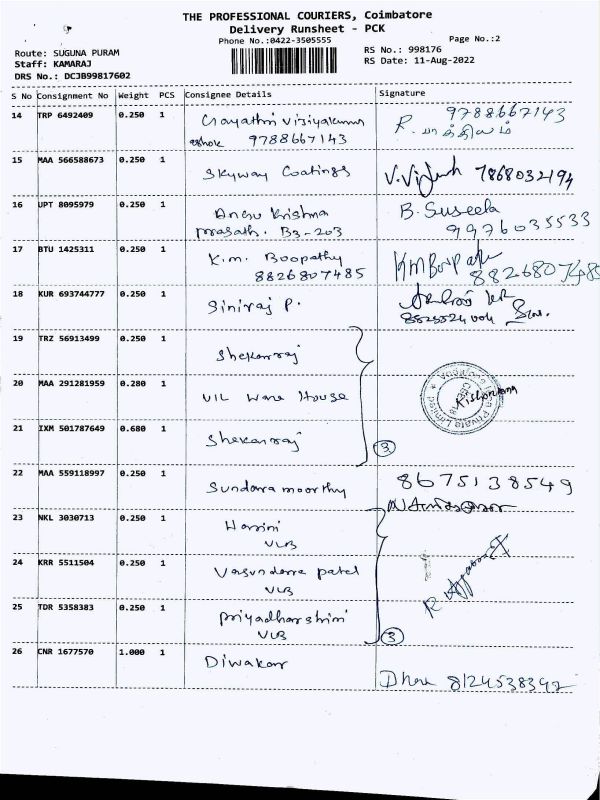 THE PROFESSIONAL COURIERS, Coimbatore
Delivery Runsheet - PCK
Phone No.:0422-3505555
Page No.:2
Route: SUGUNA PURAM
RS No.: 998176
Staff: KAMARAJ
RS Date: 11-Aug-2022
DRS No.: DCJB99817602
S No Consignment No Weight PCS Consignee Details Signature
14 TRP 6492409 0.250 1 Gayathri Vijiyakumar 9788667143
ashok 9788667143 R.
15 MAA 566588673 0.250 1 Skyway Coatings 7868032194
16 UPT 8095979 0.250 1 Anesu Krishna B. Suseela
prasath. B3-203 9976035533
17 BTU 1425311 0.250 1 K.m. Boopathy KMBoopathy
8826807485 8826807485
18 KUR 693744777 0.250 1 Siniraj P.
19 TRZ 56913499 0.250 1 Shekarraj
20 MAA 291281959 0.280 1 VIL Ware House
Vodafone Idea Private Limited
21 IXM 501787649 0.680 1 Shekarraj
3
22 MAA 559118997 0.250 1 Sundara moorthy 8675138549
23 NKL 3030713 0.250 1 Harini
VLB
24 KRR 5511504 0.250 1 Vasundara patel
VLB
25 TDR 5358383 0.250 1 Priyadharshini
VLB
3
26 CNR 1677570 1.000 1 Diwakar
8124538392